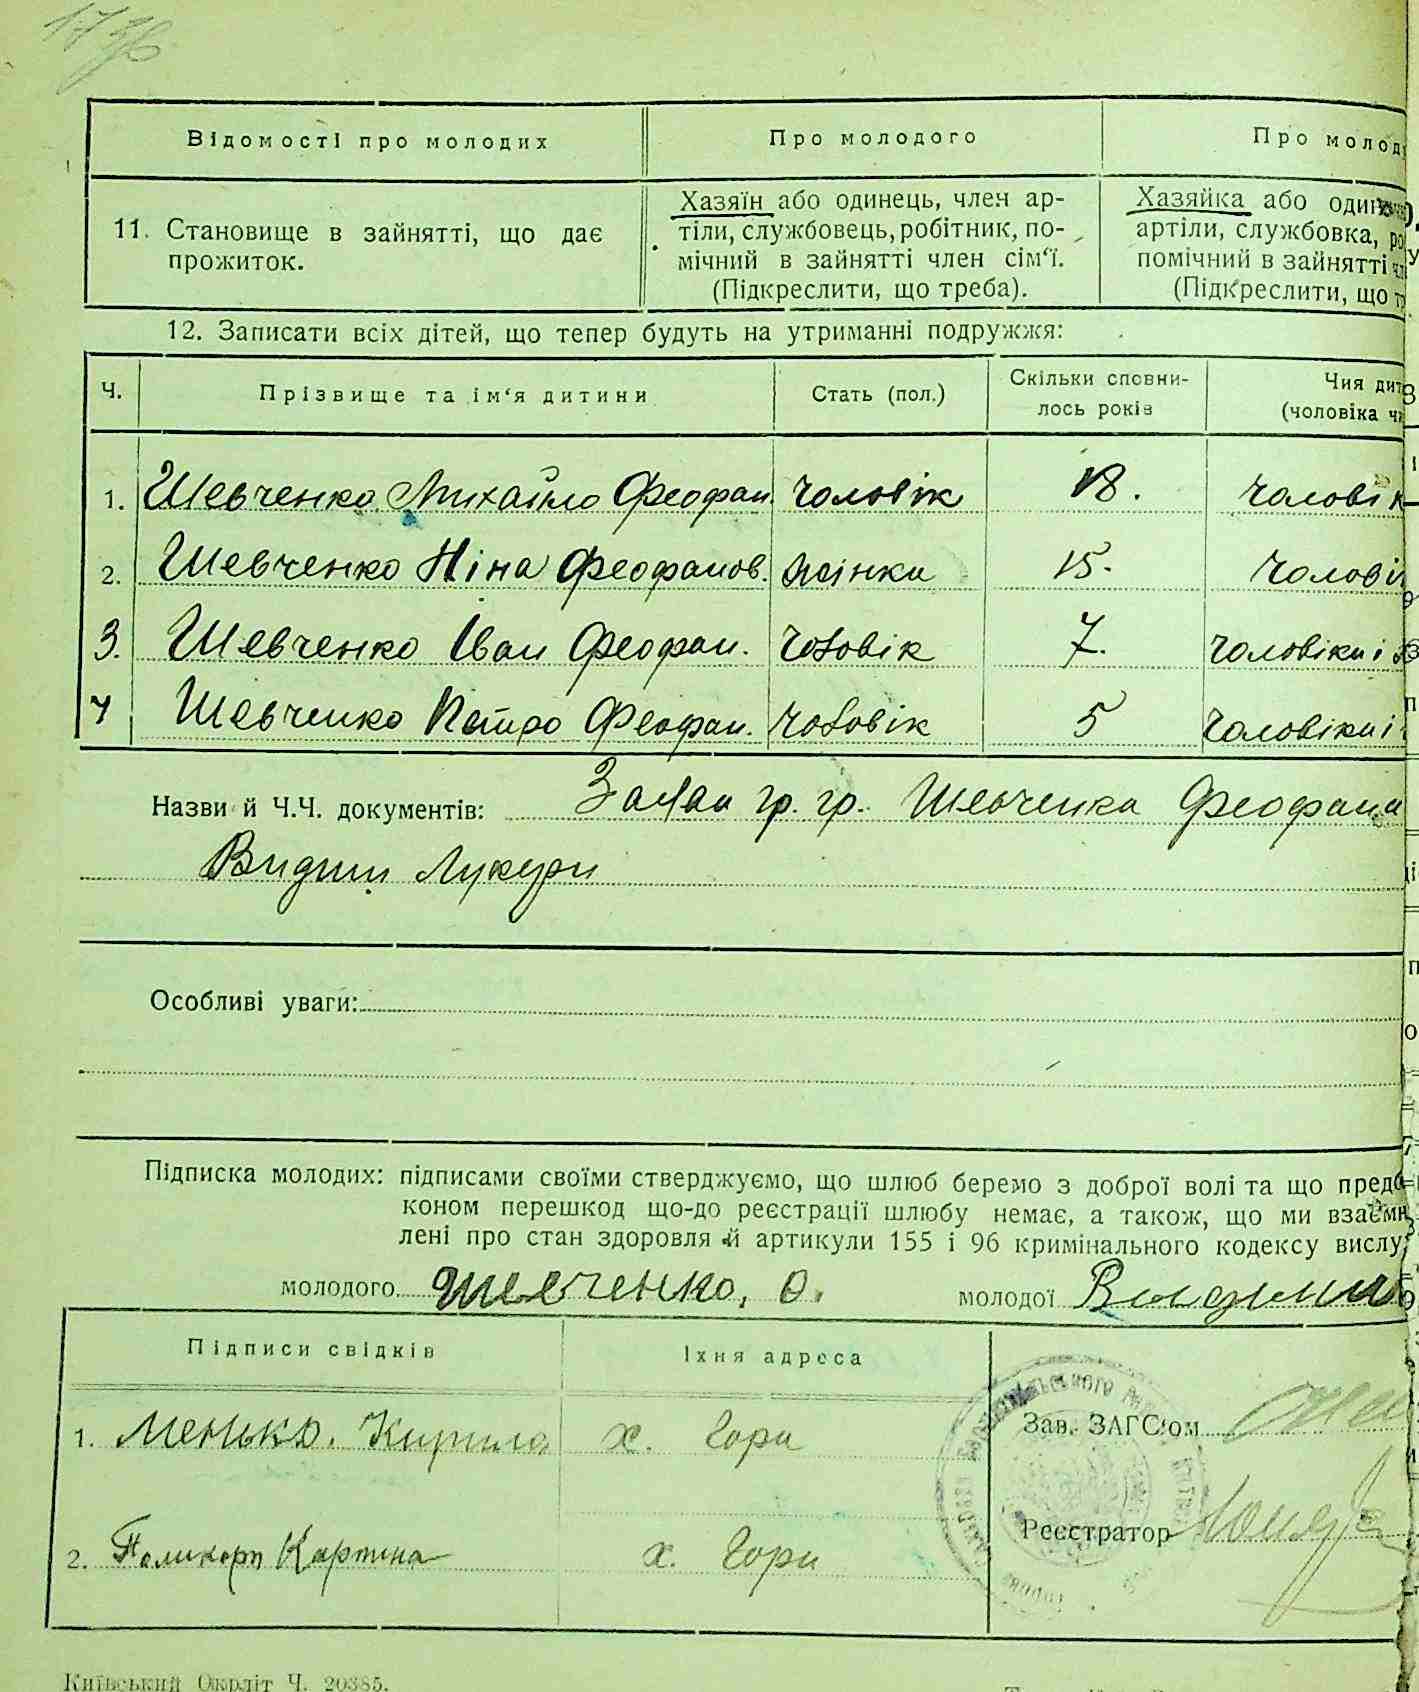 Відомості про молодих
Про молодого
Про молод
11. Становище в зайнятті, що дає
прожиток.
Хазяїн або одинець, член ар-
тіли, службовець, робітник, по-
мічний в зайнятті член сім'ї.
(Підкреслити, що треба).
Хазяйка або один
артіли, службовка, ро
помічний в зайнятті чл
(Підкреслити, що т
12. Записати всіх дітей, що тепер будуть на утриманні подружжя:
Ч.
Прізвище та ім'я дитини
Стать (пол.)
Скільки сповни-
лось років
Чия дит
(чоловіка чи
1. Шевченко Михайло Феофан. чоловік 18. чоловік
2. Шевченко Ніна Феофанов. жінка 15. чолові
3. Шевченко Іван Феофан. чоловік 7. чоловіка і
4 Шевченко Петро Феофан. чоловік 5 чоловіка і
Назви й Ч.Ч. документів: Заява гр. гр. Шевченка Феофана
Лукери
Особливі уваги:
Підписка молодих: підписами своїми стверджуємо, що шлюб беремо з доброї волі та що перед
коном перешкод що-до реєстрації шлюбу немає, а також, що ми взаємн
лені про стан здоровля й артикули 155 і 96 кримінального кодексу вислу
молодого Шевченко, О. молодої
Підписи свідків
Їхня адреса
1. Менько. Кирило х. Гори
2. Поликарп Картина х. Гори
Зав. ЗАГС'ом
Реєстратор
Київський Окрліт Ч. 20385.